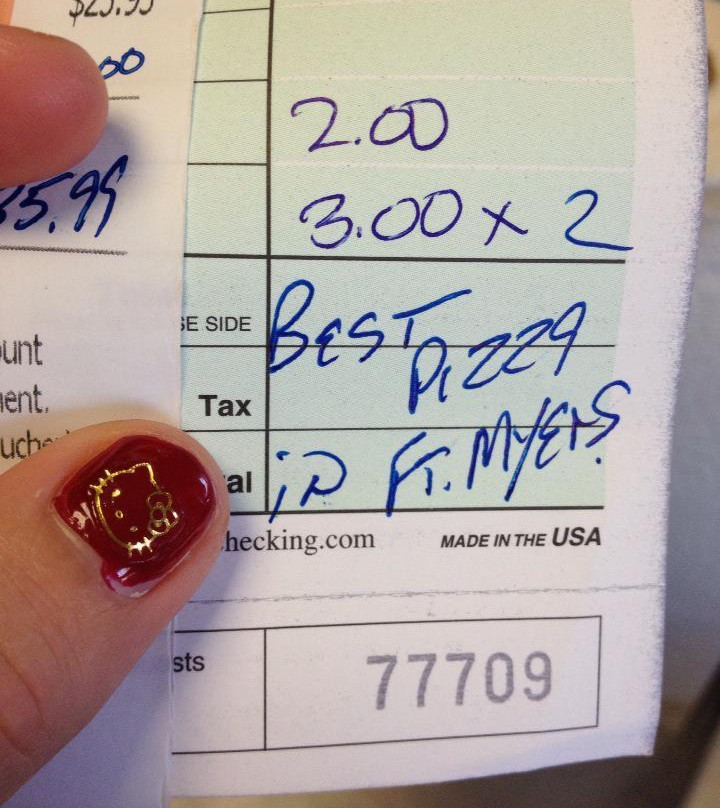 $25.95
00
2.00
5.99
3.00 x 2
SE SIDE
BEST
Pizza
unt
ment.
Tax
in FT. MYERS.
al
hecking.com
MADE IN THE USA
sts
77709